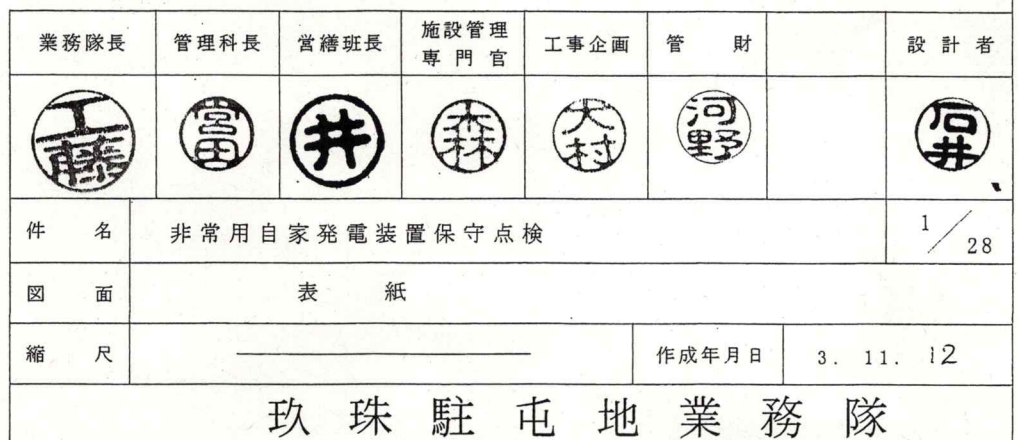 業務隊長 管理科長 営繕班長 施設管理専門官 工事企画 管財 設計者
工藤 冨田 井 森 大村 河野 石井
件名 非常用自家発電装置保守点検 1/28
図面 表紙
縮尺 作成年月日 3. 11. 12
玖珠駐屯地業務隊